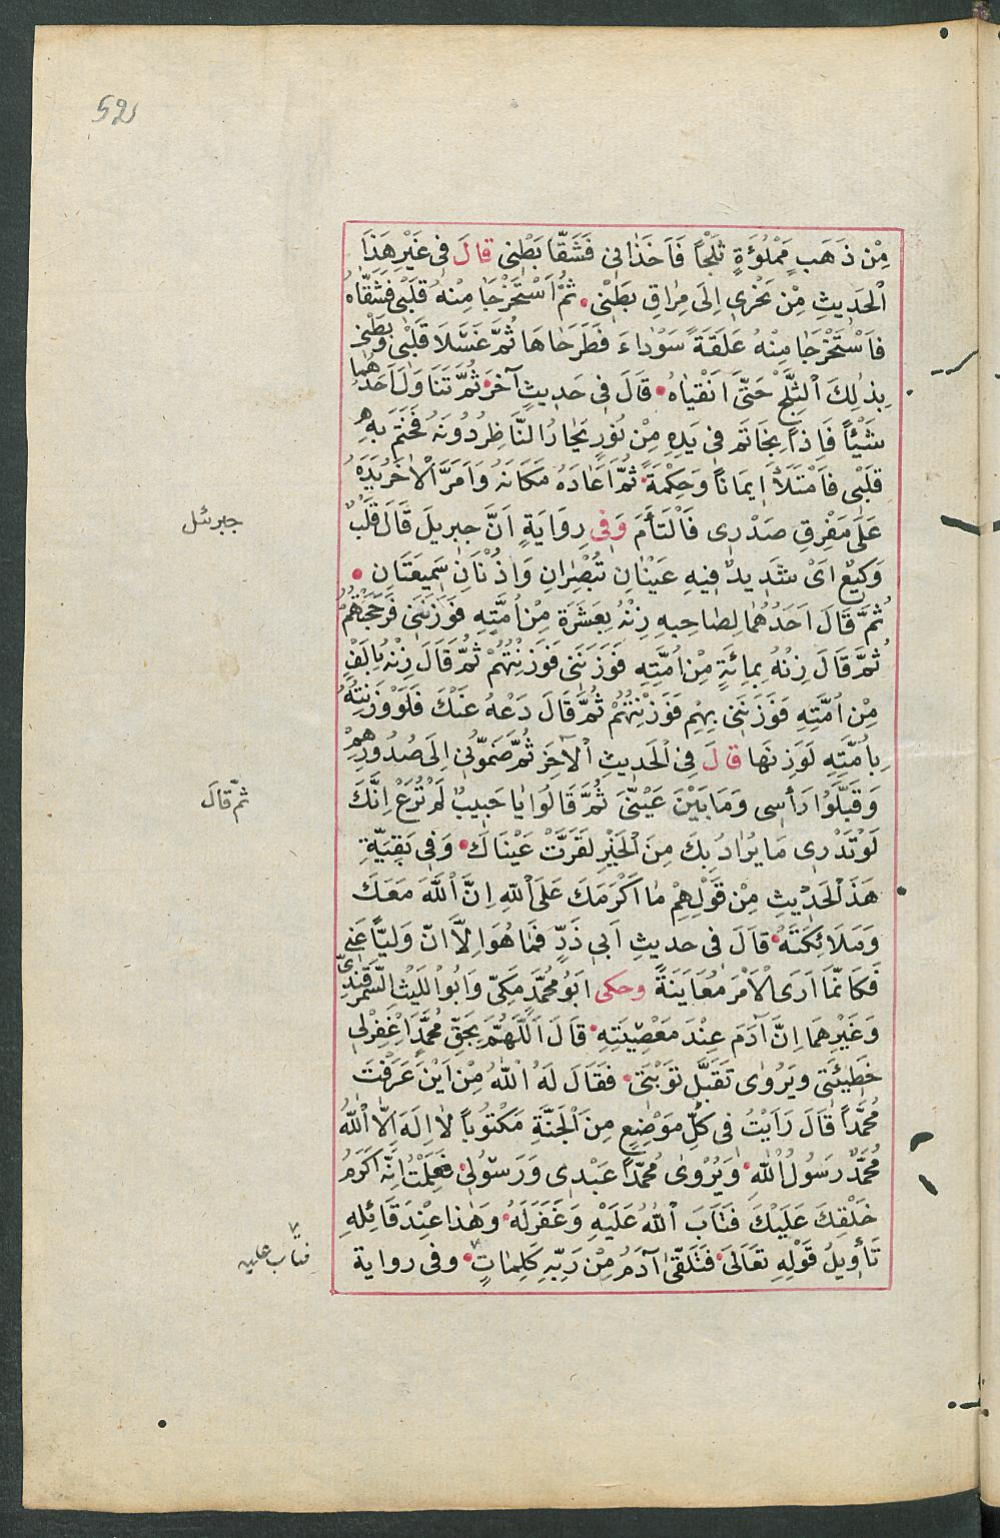 52
مِنْ ذَهَبٍ مَمْلُوَّةٍ ثَلْجًا فَاَخَذَانِى فَشَقَّا بَطْنِى قَالَ فِى غَيْرِ هَذَا
الْحَدِيثِ مِنْ نَحْرِى اِلَى مَرَاقِ بَطْنِى ثُمَّ اسْتَخْرَجَا مِنْهُ قَلْبِى فَشَقَّاهُ
فَاسْتَخْرَجَا مِنْهُ عَلَقَةً سَوْدَاءَ فَطَرَحَاهَا ثُمَّ غَسَلَا قَلْبِى وَبَطْنِى
بِذٰلِكَ الثَّلْجِ حَتَّى اَنْقَيَاهُ قَالَ فِى حَدِيثٍ آخَرَ ثُمَّ تَنَاوَلَ اَحَدُهُمَا
شَيْئًا فَاِذَا بِخَاتَمٍ فِى يَدِهِ مِنْ نُورٍ يَحَارُ النَّاظِرُ دُونَهُ فَخَتَمَ بِهِ
قَلْبِى فَامْتَلَأَ اِيمَانًا وَحِكْمَةً ثُمَّ اَعَادَهُ مَكَانَهُ وَاَمَرَّ الْاٰخَرُ يَدَهُ
عَلَى مَفْرِقِ صَدْرِى فَالْتَأَمَ وَفِى رِوَايَةٍ اَنَّ جِبرِيلَ قَالَ قَلْبٌ
جبرئل
وَكِيعٌ اَىْ شَدِيدٌ فِيهِ عَيْنَانِ تُبْصِرَانِ وَاُذْنَانِ سَمِيعَتَانِ
ثُمَّ قَالَ اَحَدُهُمَا لِصَاحِبِهِ زِنْهُ بِعَشَرَةٍ مِنْ اُمَّتِهِ فَوَزَنَنِى فَرَجَحْتُهُمْ
ثُمَّ قَالَ زِنْهُ بِمِائَةٍ مِنْ اُمَّتِهِ فَوَزَنَنِى فَوَزَنْتُهُمْ ثُمَّ قَالَ زِنْهُ بِاَلْفٍ
مِنْ اُمَّتِهِ فَوَزَنَنِى بِهِمْ فَوَزَنْتُهُمْ ثُمَّ قَالَ دَعْهُ عَنْكَ فَلَوْ وَزَنْتَهُ
بِاُمَّتِهِ لَوَزِنَهَا قَالَ فِى الْحَدِيثِ الْاٰخَرِ ثُمَّ ضَمُّونِى اِلَى صُدُورِهِمْ
وَقَبَّلُوا رَأْسِى وَمَا بَيْنَ عَيْنَىَّ ثُمَّ قَالُوا يَا حَبِيبُ لَمْ تُرَعْ اِنَّكَ
ثمّ قالَ
لَوْ تَدْرِى مَا يُرَادُ بِكَ مِنَ الْخَيْرِ لَقَرَّتْ عَيْنَاكَ وَفِى بَقِيَّةِ
هَذَ الْحَدِيثِ مِنْ قَوْلِهِمْ مَا اَكْرَمَكَ عَلَى اللّٰهِ اِنَّ اللّٰهَ مَعَكَ
وَمَلَائِكَتَهُ قَالَ فِى حديثِ اَبِى ذَرٍّ فَمَا هُوَ اِلَّا انْ وَلِيَّا عَنِّى
فَكَاَنَّمَا اَرَى الْاَمْرَ مُعَايَنَةً وحكى اَبُو مُحَمَّدٍ مَكِّىّ وَاَبُو اللَّيْثِ السَّمَرْقَنْدِىُّ
وَغَيْرِهِمَا اِنَّ آدَمَ عِنْدَ مَعْصِيَتِهِ قَالَ اللّٰهُمَّ بِحَقِّ مُحَمَّدٍ اغْفِرْلِى
خَطِيئَتِى وَيُرْوٰى تَقَبَّلْ تَوْبَتِى فَقَالَ لَهُ اللّٰهُ مِنْ اَيْنَ عَرَفْتَ
مُحَمَّدًا قَالَ رَاَيْتُ فِى كُلِّ مَوْضِعٍ مِنَ الْجَنَّةِ مَكْتُوبًا لَا اِلَهَ اِلَّا اللّٰهُ
مُحَمَّدٌ رَسُولُ اللّٰهِ وَيُرْوٰى مُحَمَّدًا عَبْدِى وَرَسُولِى فَعَلِمْتُ اِنَّهُ اَكْرَمُ
خَلْقِكَ عَلَيْكَ فَتَابَ اللّٰهُ عَلَيْهِ وَغَفَرَلَهُ وَهٰذَا عِنْدَ قَائِلِهِ
تَأْوِيلُ قَوْلِهِ تَعَالَى فَتَلَقَّىٰ آدَمُ مِنْ رَبِّهِ كَلِمَاتٍ وفى رواية
فتاب عليه